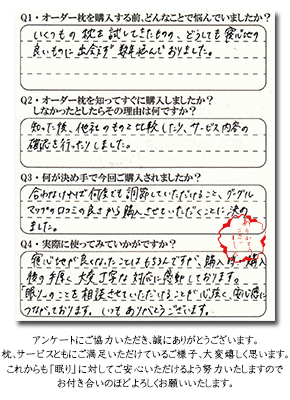 Q1・オーダー枕を購入する前、どんなことで悩んでいましたか?
いくつもの枕を試してきたものの、どうしても寝心地の
良いものに出会えず数年悩んでおりました。
Q2・オーダー枕を知ってすぐに購入しましたか?
しなかったとしたらその理由は何ですか?
知った後、他社のものと比較したり、サービス内容の
確認を行ったりしました。
Q3・何が決め手で今回ご購入されましたか?
合わなければ何度でも調節していただけること、グーグル
マップの口コミの良さから購入させていただくことに決め
ました。
Q4・実際に使ってみていかがですか?
寝心地が良くなったことはもちろんですが、購入時、購入
後の手厚く大変丁寧な対応に感動しております。
「眠り」のことを相談させていただけることが心強く、安心感に
つながっております。いつもありがとうございます。
アンケートにご協力いただき、誠にありがとうございます。
枕、サービスともにご満足いただけているご様子、大変嬉しく思います。
これからも「眠り」に対してご安心いただけるよう努力いたしますので
お付き合いのほどよろしくお願いいたします。